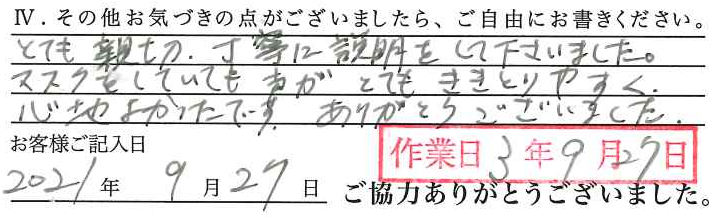 Ⅳ．その他お気づきの点がございましたら、ご自由にお書きください。
とても親切、丁寧に説明をして下さいました。
マスクをしていても声がとてもききとりやすく、
心地よかったです。ありがとうございました。
お客様ご記入日
作業日 3年9月27日
2021年 9月27日
ご協力ありがとうございました。